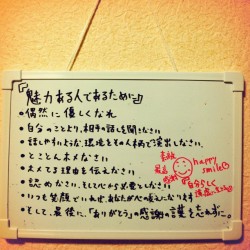 『魅力ある人であるために』
・偶然に優しくなれ
・自分のことより、相手の話しを聞きなさい
・話しやすい、環境をその人柄で演出しなさい、
・とことんホメなさい
・ホメてる理由を伝えなさい
・認めなさい、そして心から必要としなさい
・いつも笑顔でいれば、あなたがへの支えになります
・そして、最後に、「ありがとう」の感謝の言葉をわすれずに。
素敵
最高
感謝
happy
smile
自分らしく